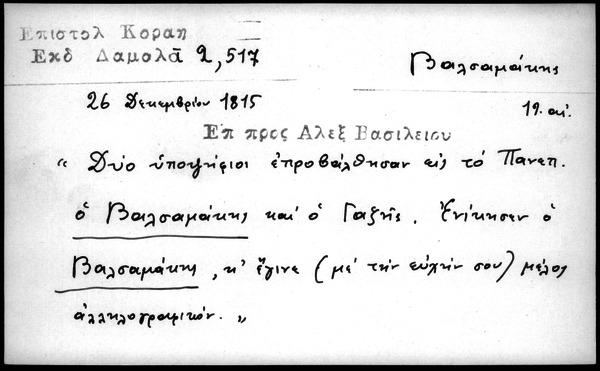 Επιστολ Κοραη
Εκδ Δαμολᾶ 2,517
Βαλσαμάκης
26 Δεκεμβρίου 1815
19. αἰ.
Επ προς Αλεξ Βασιλειου
" Δύο ὑποψήφιοι ἐπροβάλθησαν εἰς τό Πανεπ.
ὁ Βαλσαμάκης καί ὁ Γαζῆς. Ἐνίκησεν ὁ
Βαλσαμάκης, κ' ἔγινε (μέ τήν εὐχήν σου) μέλος
ἀλληλογραφικόν. "